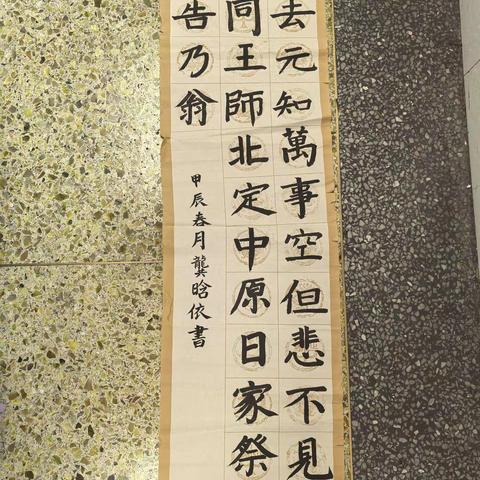 去元知萬事空但悲不見
同王師北定中原日家祭
告乃翁
甲辰春月龔晗依書